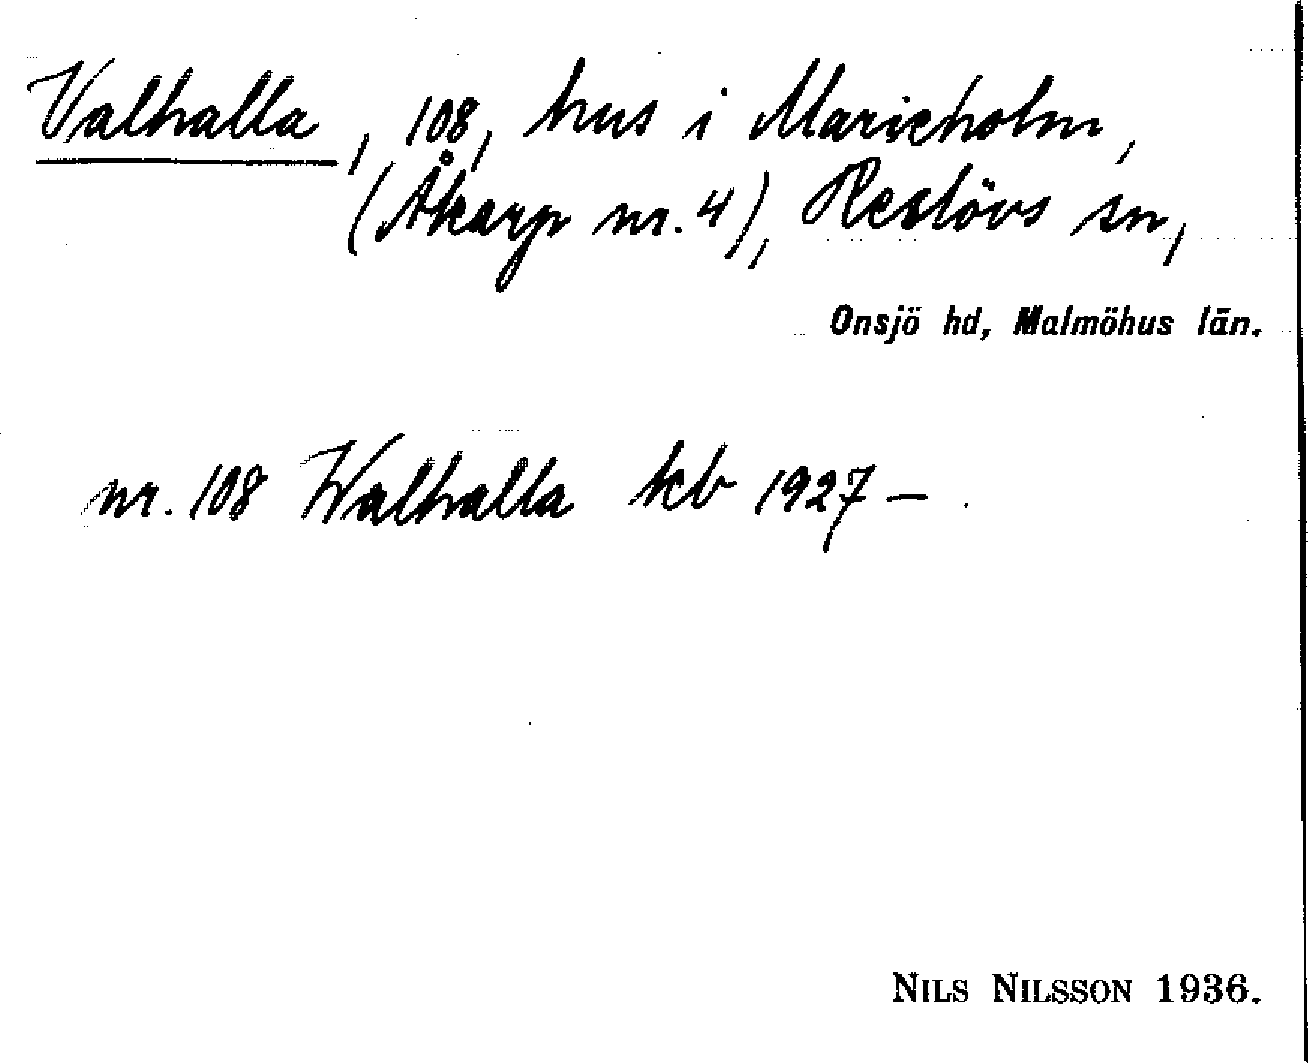 Valhalla, 108, hus i Marieholm,
(Åkarp nr. 4), Reslövs sn,
Onsjö hd, Malmöhus län.
nr. 108 Walhalla kb 1927 – .
NILS NILSSON 1936.